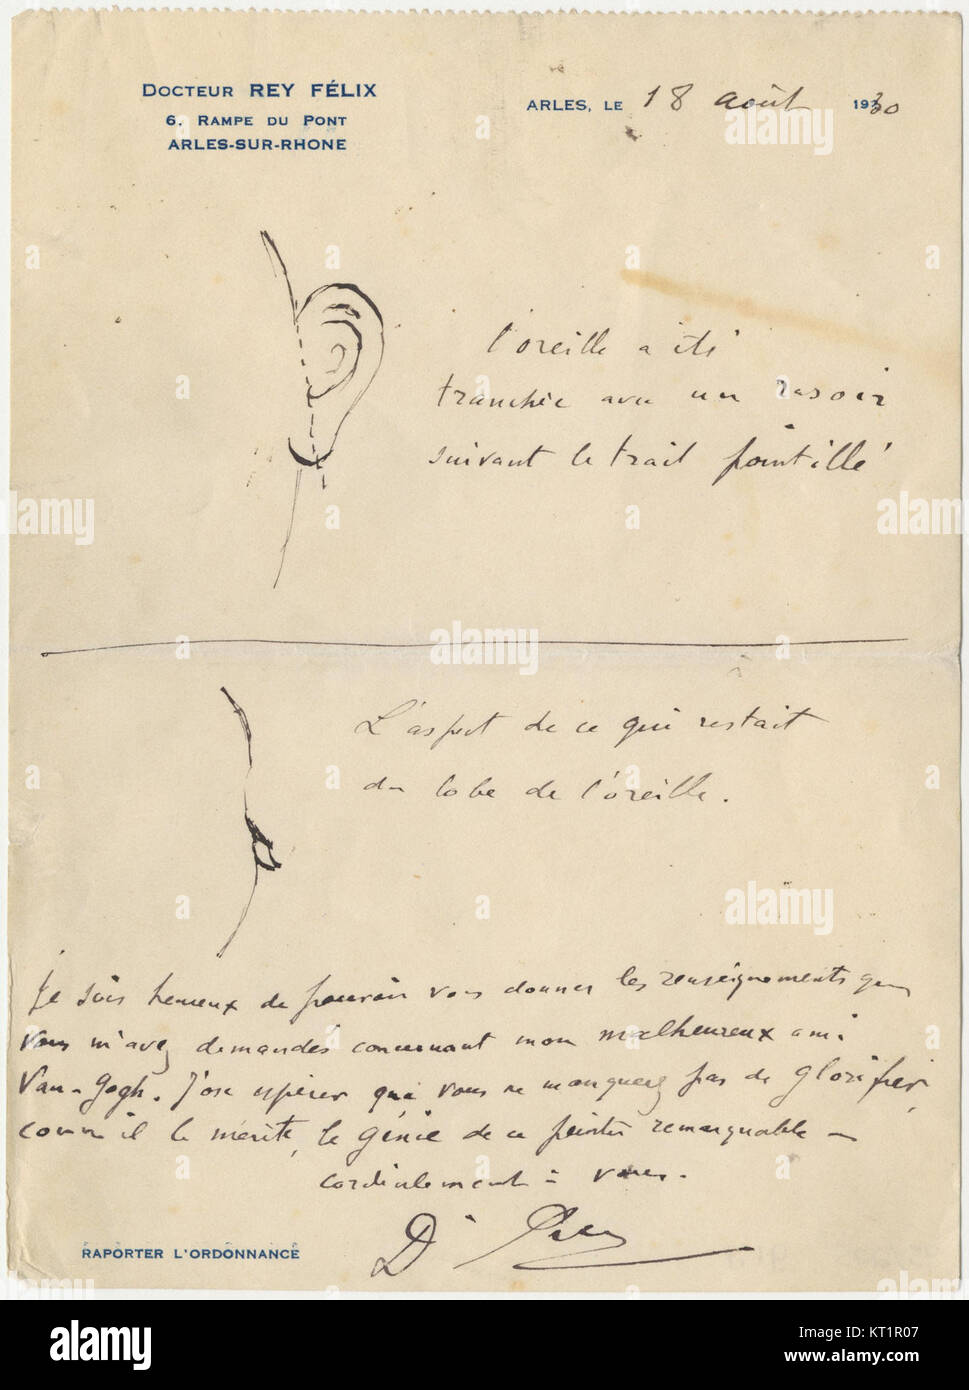 DOCTEUR REY FÉLIX
6, RAMPE DU PONT
ARLES-SUR-RHONE
ARLES, LE 18 août 1930
l'oreille a été
tranchée avec un rasoir
suivant le trait pointillé
L'aspect de ce qui restait
du lobe de l'oreille.
Je suis heureux de pouvoir vous donner les renseignements que
vous m'avez demandés concernant mon malheureux ami
Van-Gogh. J'ose espérer que vous ne manquerez pas de glorifier,
comme il le mérite, le génie de ce peintre remarquable
cordialement à vous.
Dr Rey
RAPORTER L'ORDONNANCE
alamy
a
alamy
Image ID: KT1R07
www.alamy.com